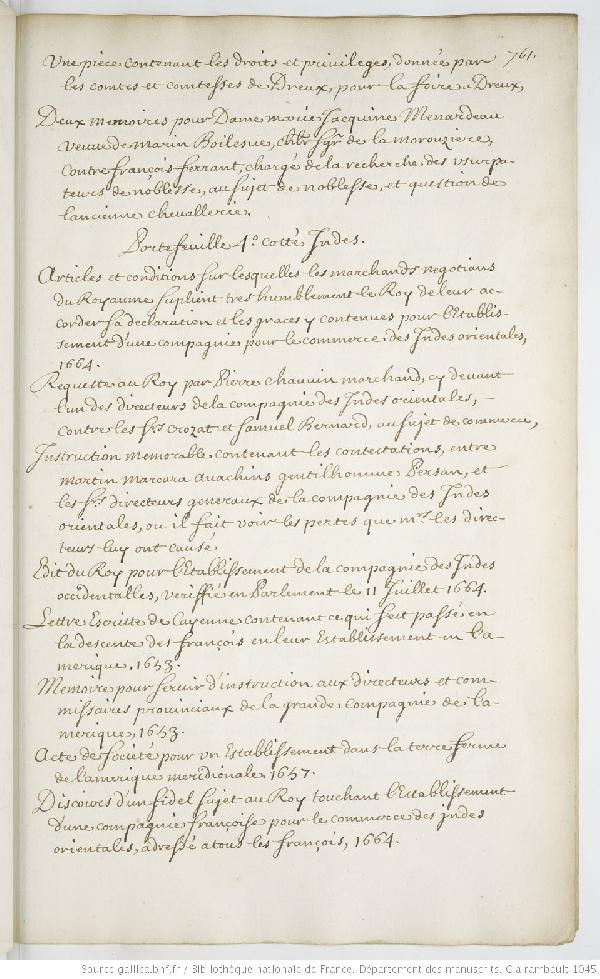 761.
Vne piece contenant les droits et privileges, donnée par
les comtes et comtesses de Dreux, pour la foire a Dreux,
Deux memoires pour Dame marie Jacquine Menardeau
veuve de marin Boilesue, chlr sgr de la morouziere,
contre françois ferrant, chargé de la recherche, des vsurpa-
teurs de noblesse, au sujet de noblesse, et question de
lancienne chevallerie.
Portefeuille 4.º cotté Indes.
Articles et conditions sur lesquelles les marchands negotians
du Royaume suplient tres humblement le Roy de leur ac-
corder sa declaration et les graces y contenues pour l'Establis-
sement d'une compagnie pour le commerce des Indes orientales,
1664.
Requeste au Roy par Pierre chauvin marchand, cy devant
l'un des directeurs de la compagnie des Indes orientales, -
contre les Srs crozat et samuel Bernard, au sujet de commerce,
Instruction memorable contenant les contestations, entre
martin marcara auachins gentilhomme Persan, et
les Srs directeurs generaux de la compagnie des Indes
orientales, ou il fait voir les pertes que mrs les direc-
teurs luy ont causé.
Edit du Roy pour l'Etablissement de la compagnie des Indes
occidentalles, veriffié en Parlement le 11 Juillet 1664.
Lettre Escritte de Cayenne contenant ce qui s'est passé en
la descente des françois en leur Establissement en l'a-
merique, 1653.
Memoire pour servir d'instruction aux directeurs et com-
missaires provinciaux de la grande compagnie de l'a-
merique, 1653.
Acte de societé pour vn Establissement dans la terre ferme
de l'amerique meridionale, 1657.
Discours d'un fidel sujet au Roy touchant l'Establissement
d'une compagnie françoise pour le commerce des jndes
orientales, adressé a tous les françois, 1664.
Source gallica.bnf.fr / Bibliothèque nationale de France. Département des manuscrits. Clairambault 1045